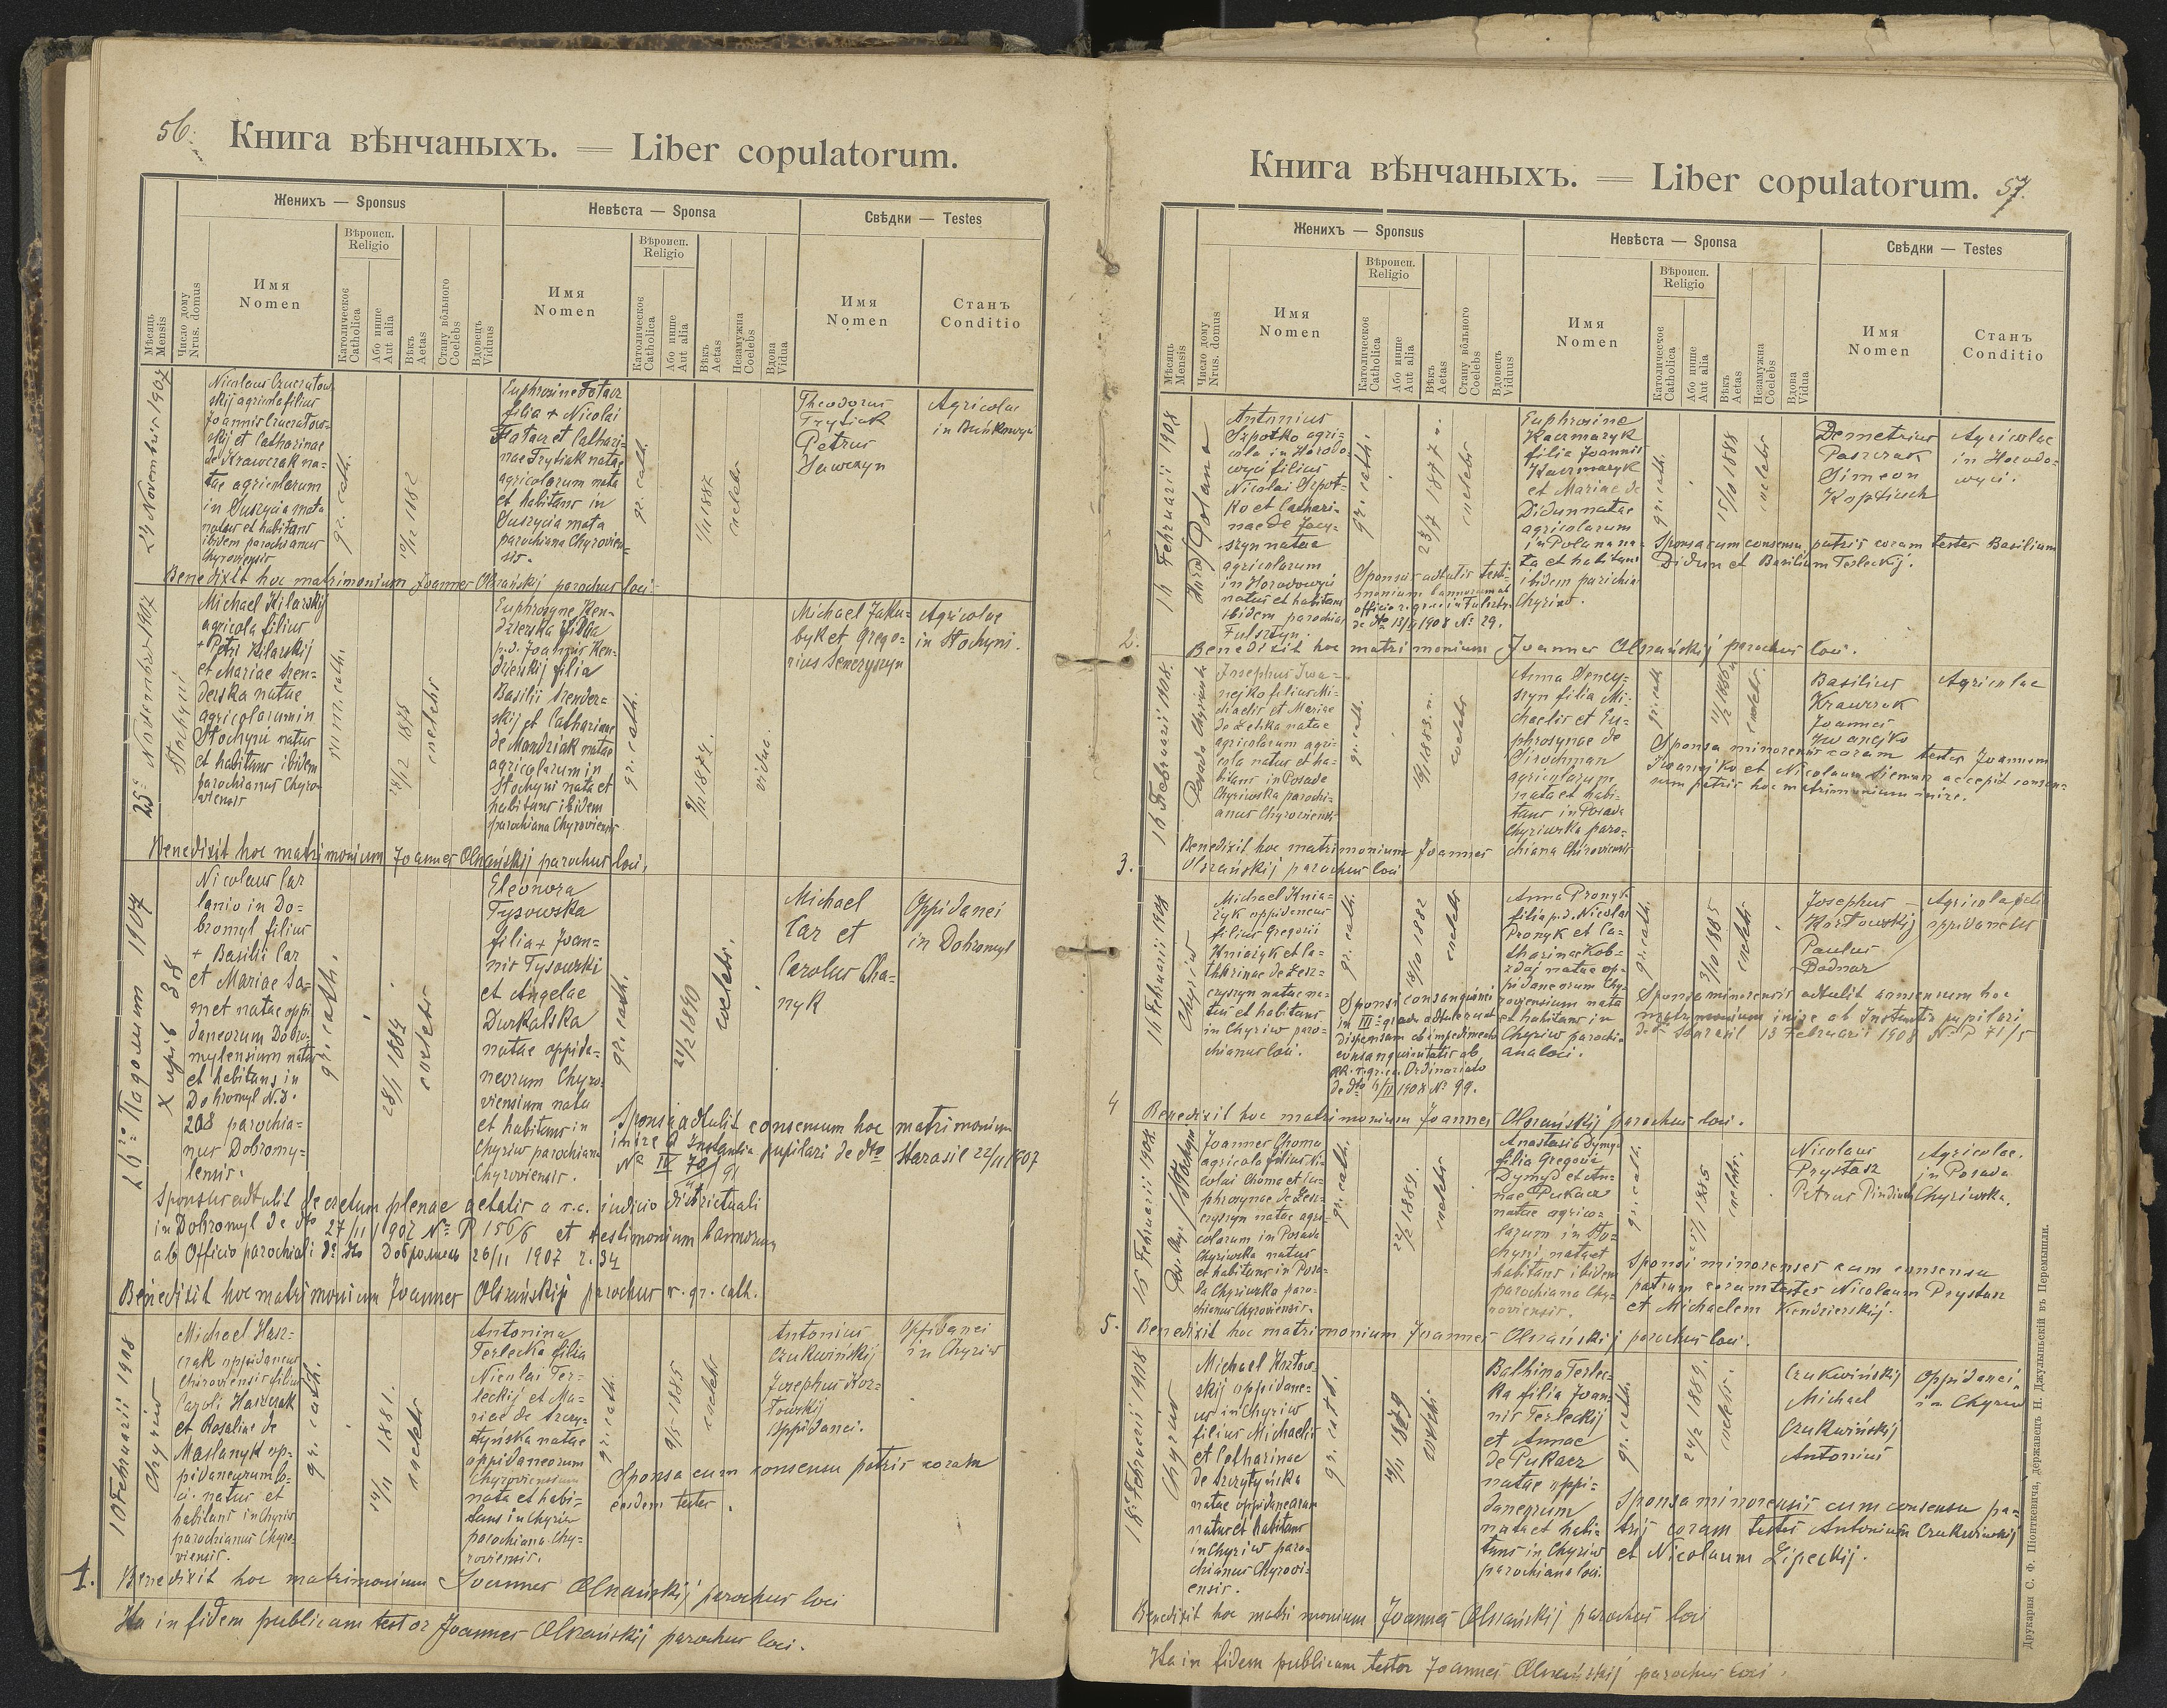 56.
Книга вѣнчаныхъ. — Liber copulatorum.
Женихъ — Sponsus
Невѣста — Sponsa
Свѣдки — Testes
Мѣсяць
Mensis
Число дому
Nrus. domus
Имя
Nomen
Вѣроисп.
Religio
Католическое
Catholica
Або инше
Aut alia
Вѣкъ
Aetas
Стану вôльного
Coelebs
Вдовець
Viduus
Имя
Nomen
Вѣроисп.
Religio
Католическое
Catholica
Або инше
Aut alia
Вѣкъ
Aetas
Незамужна
Coelebs
Вдова
Vidua
Имя
Nomen
Станъ
Conditio
24 Novembris 1907
skij agricola filius
et Catharinae
de Krawczak na=
tae agricolarum
in Suszycia mala
natus et habitans
ibidem parochianus
Chyroviensis
gr. cath.
10/12 1882
Euphrosine Fatacz
filia + Nicolai
Fatacz et Cathari=
nae Frytiak natae
agricolarum nata
et habitans in
Suszycia mala
parochiana Chyrovien=
sis.
gr. cath.
1/11 1887
coelebs
Theodorus
Frytiak
Petrus
Agricolae
Benedixit hoc matrimonium Joannes Olszańskij parochus loci.
25. Novembris 1907
Michael Kilarskij
agricola filius
+ Petri Kilarskij
et Mariae
natae
agricolarum in
natus
et habitans ibidem
parochianus Chyro
viensis
coelebs
Euphrosyne Ken=
dzierska vidua
p.d. Joannis Ken=
dzierskij filia
Basilii
skij et Catharinae
de Mandziak natae
agricolarum in
nata et
habitans ibidem
parochiana Chyroviensis
gr. cath.
vidua
Michael Jaku=
byk et Grego=
rius Senczyszyn
Agricolae
in Stochyni.
Benedixit hoc matrimonium Joannes Olszańskij parochus loci.
26. Падолиста 1907
Хирів 38
Nicolaus Car
lanio in Do=
bromyl filius
+ Basilii Car
et Mariae Sa=
met natae oppi
daneorum Dobro=
mylensium natus
et habitans in
Dobromyl N.d.
208 parochia=
nus Dobromy=
lensis.
gr. cath.
28/1 1884
coelebs
Eleonora
Tysowska
filia + Joan=
nis Tysowski
et Angelae
Durkalska
natae oppida=
neorum Chyro=
viensium nata
et habitans in
Chyriw parochiana
Chyroviensis.
gr. cath.
21/2 1890
coelebs.
Michael
Car et
Carolus Cha=
nyk
Oppidanei
in Dobromyl
Sponsa adtulit consensum hoc matrimonium
inire a Instantia pupilari de dto Starasil 22/11 1907
Sponsus adtulit decretum plenae aetatis a r.c. iudicio districtuali
in Dobromyl de dto 27/11 1907 No P 156/6 et testimonium bannorum
ab Officio parochiali de dto Добромиль 26/11 1907 z. 34
Benedixit hoc matrimonium Joannes Olszańskij parochus r. gr. cath.
10 Februarii 1908
Chyriw
Michael Hasz=
czak oppidaneus
Chiroviensis filius
Caroli Haszczak
et Rosaliae de
Maslanyk op=
pidaneorum lo=
ci natus et
habitans in Chyriw
parochianus Chyro=
viensis.
gr. cath.
14/11 1881.
coelebs
Antonina
Terlecka filia
Nicolai Ter=
leckij et Ma=
riae de Szczy=
tyńska natae
oppidaneorum
Chyroviensium
nata et habi=
tans in Chyriw
parochiana Chy=
roviensis.
gr. cath.
9/5 1885
coelebs
Antonius
Czukwińskij
Josephus Koz=
towskij
oppidanei.
Oppidanei
in Chyriw
Sponsa cum consensu patris coram
eisdem testes.
1. Benedixit hoc matrimonium Joannes Olszańskij parochus loci
Ita in fidem publicam testor Joannes Olszańskij parochus loci.
Книга вѣнчаныхъ. — Liber copulatorum.
57.
Женихъ — Sponsus
Невѣста — Sponsa
Свѣдки — Testes
Мѣсяць
Mensis
Число дому
Nrus. domus
Имя
Nomen
Вѣроисп.
Religio
Католическое
Catholica
Або инше
Aut alia
Вѣкъ
Aetas
Стану вôльного
Coelebs
Вдовець
Viduus
Имя
Nomen
Вѣроисп.
Religio
Католическое
Catholica
Або инше
Aut alia
Вѣкъ
Aetas
Незамужна
Coelebs
Вдова
Vidua
Имя
Nomen
Станъ
Conditio
Februarii 1908
Polana
Antonius
Szpotko agri=
cola in Horodo=
wyci filius
Nicolai Szpot=
ko et Cathari=
nae de Jacy=
szyn natae
agricolarum
in Horodowyci
natus et habitans
ibidem parochia
Fulsztyn.
gr. cath.
coelebs
Sponsus adtulit testi=
monium bannorum ab
officio r. gr. c. in Fulsztyn
de dto 13/2 1908 No 29.
Euphrosine
Kaczmaryk
filia Joannis
Kaczmaryk
et Mariae de
Didun natae
agricolarum
in Polana na=
ta et habitans
ibidem parochia
Chyriw.
gr. cath.
15/10 1888
coelebs
Demetrius
Paszczak
Simeon
Koptiuch
Agricolae
in Horodo=
wyci.
Sponsa cum consensu patris coram testes Basilium
Didun et Basilium Terleckij.
2. Benedixit hoc matrimonium Joannes Olszańskij parochus loci.
Februarii 1908.
Posada Chyriwska
Josephus Iwa=
nejko filius Mi=
chaelis et Mariae
natae
agricolarum agri=
cola natus et ha=
bitans in Posada
Chyriwska parochi=
anus Chyroviensis
gr. cath.
coelebs
Anna Sency=
szyn filia Mi=
chaelis et Eu=
phrosynae de
agricolarum
nata et habi=
tans in Posada
Chyriwska paro=
chiana Chiroviensis
gr. cath.
coelebs
Basilius
Krawczak
Joannes
Iwanejko
Agricolae
Sponsa minorensis coram testes Joannem
Iwanejko et Nicolaum accepit consen=
sum patris hoc matrimonium inire.
3. Benedixit hoc matrimonium Joannes
Olszańskij parochus loci
Februarii 1908
Chyriw
Michael Knia=
zyk oppidaneus
filius Gregorii
Kniazyk et Ca=
tharinae de Lesz=
czyszyn natae na=
tus et habitans
in Chyriw paro=
chianus loci.
gr. cath.
18/10 1882
coelebs
Sponsi consanguinei
in III gradu adtulerunt
dispensam ab impedimento
consanguinitatis ab
RR. r. gr. ca. Ordinariato
de dto 4/II 1908 No 99.
Anna Pronyk
filia p.d. Nicolai
Pronyk et Ca=
tharinae Kob=
zdaj natae op=
pidaneorum Chy=
roviensium nata
et habitans in
Chyriw parochi=
ana loci.
gr. cath.
3/10 1885
coelebs
Josephus
Koztowskij
Paulus
Bodnar
Sponsa minorensis adtulit consensum hoc
matrimonium inire ab Instantia pupilari
de dto Starasil 13 Februarii 1908 No P 71/5
4 Benedixit hoc matrimonium Joannes Olszańskij parochus loci.
15 Februarii 1908.
Joannes Choma
agricola filius Ni=
colai Choma et Eu=
phrosynae de Lesz=
czyszyn natae agri=
colarum in Posada
Chyriwska natus
et habitans in Posa=
da Chyriwska paro=
chianus Chyroviensis.
gr. cath.
22/2 1884.
coelebs
Anastasia Dymyd
filia Gregorii
Dymyd et An=
nae Pukacz
natae agrico=
larum in Sto=
chyni nata et
habitans ibidem
parochiana Chy=
roviensis.
gr. cath.
coelebs.
Nicolaus
Prystasz
Petrus
Agricolae
in Posada
Chyriwska.
Sponsi minorenses cum consensu
patrum coram testes Nicolaum Prystasz
et Michaelem Kendzierskij.
5. Benedixit hoc matrimonium Joannes Olszańskij parochus loci.
18. Februarii 1908
Chyriw
Michael Koztow=
skij oppidane=
us in Chyriw
filius Michaelis
et Catharinae
de Szczytyńska
natae oppidaneorum
natus et habitans
in Chyriw paro=
chianus Chyrovi=
ensis.
gr. cath.
19/11 1879
coelebs
Balbina Terlec=
ka filia Joan=
nis Terleckij
et Annae
de Pukacz
natae oppi=
daneorum
nata et habi=
tans in Chyriw
parochiana loci.
gr. cath.
24/2 1889.
coelebs.
Czukwińskij
Michael
Czukwińskij
Antonius
Oppidanei
in Chyriw
Sponsa minorensis cum consensu pa=
tris coram testes Antonium Czukwińskij
et Nicolaum Lipeckij.
Benedixit hoc matrimonium Joannes Olszańskij parochus loci
Ita in fidem publicam testor Joannes Olszańskij parochus loci.
Друкарня С. Ф. Піонткевича, державець Н. Джулыньскій въ Перемышли.